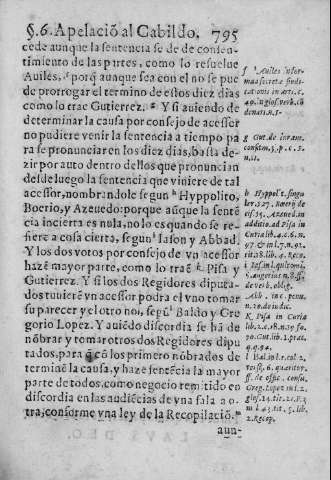 §.6. Apelaciō al Cabildo. 795
cede aunque la sentencia se de de consen-
timiento de las partes, como lo resuelue
Auiles, f porq̃ aunque sea con el no se pue
de prorrogar el termino de estos diez dias
como lo trae Gutierrez. g Y si auiendo de
determinar la causa por consejo de acessor
no pudiere venir la sentencia a tiempo pa
ra se pronunciar en los diez dias, basta de-
zir por auto dentro dellos que pronuncian
desde luego la sentencia que viniere de tal
acessor, nombrandole segun h Hyppolito,
Bocrio, y Azeuedo: porque aũque la sentē
cia incierta es nula, no lo es quando se re-
fiere a cosa cierta, segun i Iason y Abbad.
Y los dos votos por consejo de vn acessor
hazē mayor parte, como lo traē k Pisa y
Gutierrez. Y si los dos Regidores diputa-
dos tuuierē vn acessor podra el vno tomar
su parecer y el otro no, segū l Baldo y Gre
gorio Lopez. Y auiēdo discordia se hā de
nōbrar y tomar otros dos Regidores dipu
tados, para q̃ cō los primero nōbrados de-
terminē la causa, y haze sentēcia la mayor
parte de todos, como negocio remitido en
discordia en las audiēcias de vna sala a o-
tra, conforme vna ley de la Recopilaciō. m
aun-
f Auiles infor-
ma secreta sindi-
cationis in arte. c.
denari. n. 1.
g Gut. de iuram.
confirm. 3. p. c. 5.
n. 11.
h Hyppol. singu
additio. ad Pisa in
Curia lib. 4. c. 6. n.
tit. 18. lib. 4. Reco.
de verb. oblig.
Abb. in c. penu.
n. 20. de iudic.
K Pisa in Curia
70. Gut. lib. 1. prat.
q. 94.
l Bal. in l. t. col. 2.
ff. de offic. consu.
Greg. Lopez in l. 2.
2. Recop.